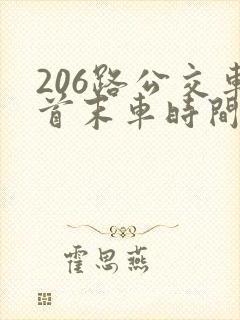 206路公交車
首末車時間
霍思燕